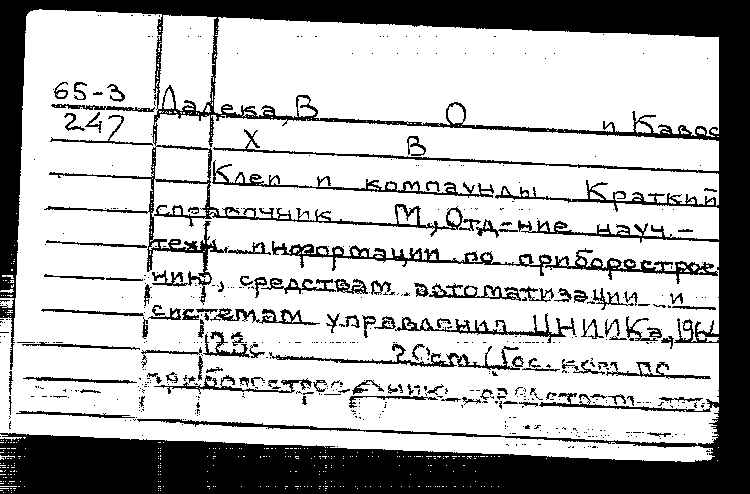 65-3 Дадека, В О и Кавос
247 Х В
Клеи и компаунды. Краткий
справочник. М., Отд-ние науч.-
техн. информации по приборострое-
нию, средствам автоматизации и
системам управления ЦНИИКа, 196
123с. 20см. (Гос. ком по
приборостроению, средствам авто